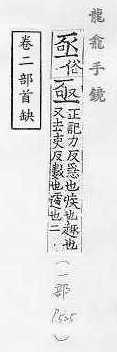 龍龕手鏡
俗亟正記力反急也疾也趣也
又去吏反數也遽也二
(一部 P525)
卷二部首缺